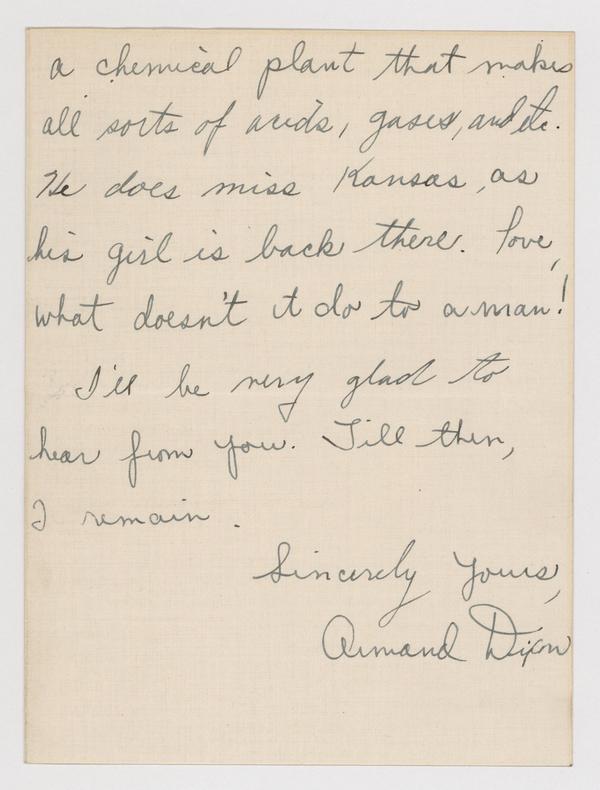 a chemical plant that makes
all sorts of acids, gases, and etc.
He does miss Kansas, as
his girl is back there. Love,
what doesn't it do to a man!
I'll be very glad to
hear from you. Till then,
I remain.
Sincerely Yours,
Armand Dixon